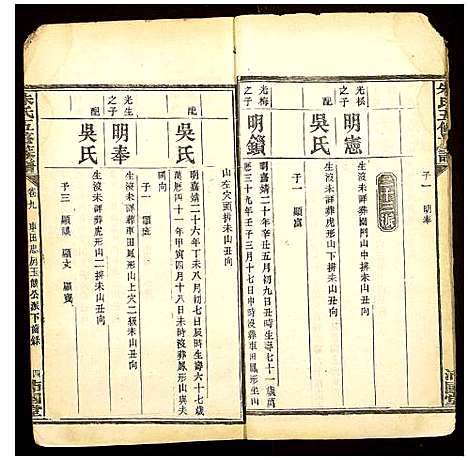 子一 明奉
光極之子
明憲
生沒未詳葬園門山丑向
配
吳氏
生沒未詳葬虎形山下排未山丑向
子一 顯
光梅之子
明鎖
明嘉靖二十年辛丑五月初九日丑時生壽七十一歲萬
曆三十九年壬子三月十七日申時沒葬車田鳳形山
山左穴頭排未山丑向
配
吳氏
明嘉靖二十六年丁未八月初七日辰時生壽六十七歲
萬曆四十一年甲寅四月十八日未時沒葬鳳形山與夫
同向
子一
光生之子
明奉
生沒未詳葬車田鳳形山上穴二級未山丑向
配
吳氏
生沒未詳葬虎形山二排未山丑向
子三 顯 顯文 顯
朱氏五修族譜
卷九
車田忠房玉 公派下齒錄
四